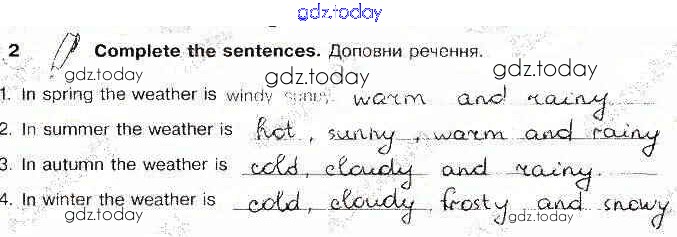 gdz.today
2 Complete the sentences. Доповни речення.
gdz.today gdz.today gdz.today
1. In spring the weather is windy sunny warm and rainy
2. In summer the weather is hot, sunny, warm and rainy
3. In autumn the weather is cold, cloudy and rainy.
4. In winter the weather is cold, cloudy, frosty and snowy
gdz.today gdz.today